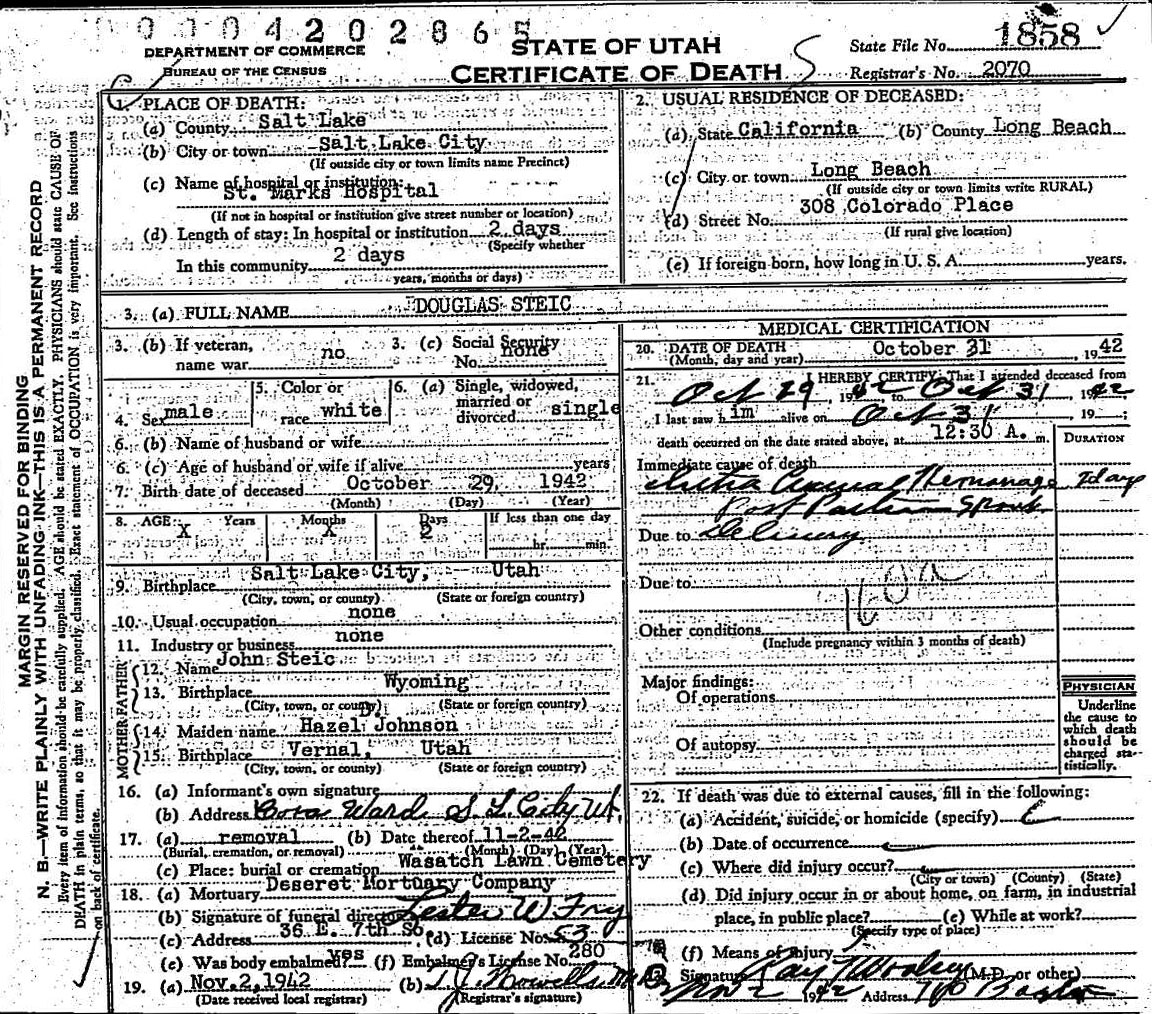 0004202865
DEPARTMENT OF COMMERCE
BUREAU OF THE CENSUS
STATE OF UTAH
CERTIFICATE OF DEATH
State File No. 1858
Registrar's No. 2070
MARGIN RESERVED FOR BINDING
N. B.—WRITE PLAINLY WITH UNFADING INK—THIS IS A PERMANENT RECORD
Every item of information should be carefully supplied. AGE should be stated EXACTLY. PHYSICIANS should state CAUSE OF
DEATH in plain terms, so that it may be properly classified. Exact statement of OCCUPATION is very important. See instructions
on back of certificate.
1. PLACE OF DEATH:
(a) County Salt Lake
(b) City or town Salt Lake City
(If outside city or town limits name Precinct)
(c) Name of hospital or institution:
St. Marks Hospital
(If not in hospital or institution give street number or location)
(d) Length of stay: In hospital or institution 2 days
(Specify whether
In this community 2 days
years, months or days)
2. USUAL RESIDENCE OF DECEASED:
(a) State California (b) County Long Beach
(c) City or town Long Beach
(If outside city or town limits write RURAL)
(d) Street No. 308 Colorado Place
(If rural give location)
(e) If foreign born, how long in U. S. A. years.
3. (a) FULL NAME DOUGLAS STEIC
3. (b) If veteran, name war no
3. (c) Social Security No. none
4. Sex male
5. Color or race white
6. (a) Single, widowed, married or divorced single
6. (b) Name of husband or wife
6. (c) Age of husband or wife if alive years
7. Birth date of deceased October 29, 1942
(Month) (Day) (Year)
8. AGE: Years Months Days If less than one day
X X 2 hr. min.
9. Birthplace Salt Lake City, Utah
(City, town, or county) (State or foreign country)
10. Usual occupation none
11. Industry or business none
FATHER
12. Name John Steic
13. Birthplace Wyoming
(City, town, or county) (State or foreign country)
MOTHER
14. Maiden name Hazel D. Johnson
15. Birthplace Vernal, Utah
(City, town, or county) (State or foreign country)
16. (a) Informant's own signature
(b) Address Cora Ward S. L. City Ut.
17. (a) removal (b) Date thereof 11-2-42
(Burial, cremation, or removal) (Month) (Day) (Year)
(c) Place: burial or cremation Wasatch Lawn Cemetery
18. (a) Mortuary Deseret Mortuary Company
(b) Signature of funeral director Lester W Fry
(c) Address 36 E. 7th So. (d) License No. 53
(e) Was body embalmed? yes (f) Embalmer's License No. 280
19. (a) Nov. 2, 1942 (b) T. J. Howells M.D.
(Date received local registrar) (Registrar's signature)
MEDICAL CERTIFICATION
20. DATE OF DEATH October 31, 1942
(Month, day and year)
21. I HEREBY CERTIFY That I attended deceased from
Oct 29, 1942 to Oct 31 1942
I last saw him alive on Oct 31 19 ;
death occurred on the date stated above, at 12:30 A. m.
DURATION
Immediate cause of death
Hemorrhage 2 days
Post
Due to Delivery
Due to
160a
Other conditions
(Include pregnancy within 3 months of death)
Major findings:
Of operations
Of autopsy
PHYSICIAN
Underline
the cause to
which death
should be
charged sta-
tistically.
22. If death was due to external causes, fill in the following:
(a) Accident, suicide, or homicide (specify)
(b) Date of occurrence
(c) Where did injury occur?
(City or town) (County) (State)
(d) Did injury occur in or about home, on farm, in industrial
place, in public place? (e) While at work?
(Specify type of place)
(f) Means of injury
Signature Ray T Woolsey (M.D. or other)
Nov 2 1942 Address